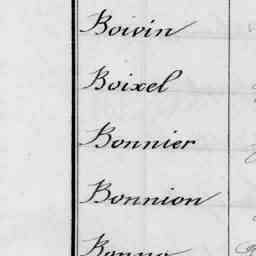 Boivin
Boixel
Bonnier
Bonnion